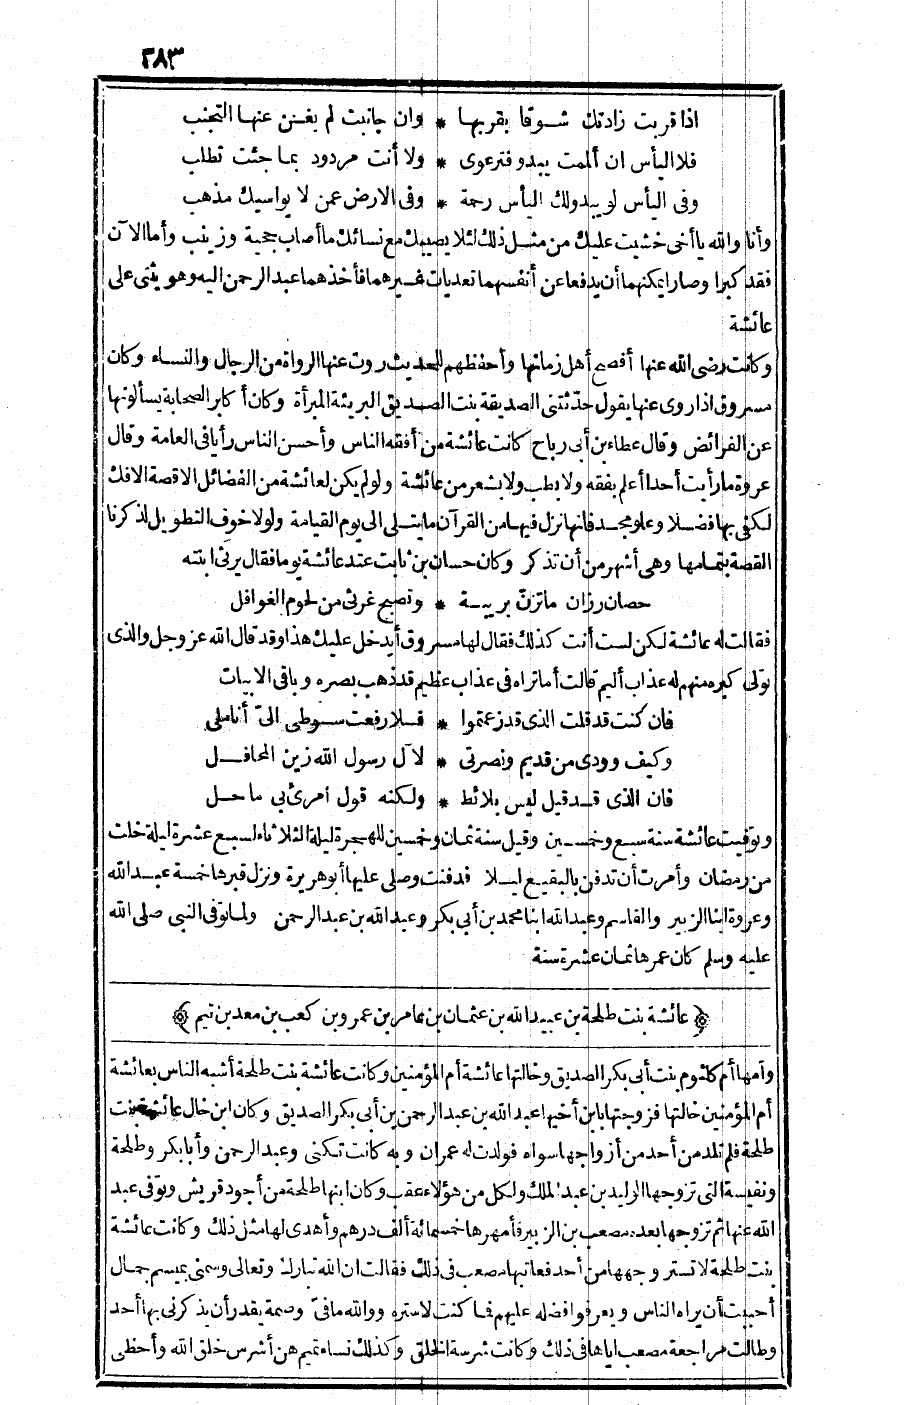 ٢٨٣
اذا قربت زادتك شوقا بقربها * وان جانبت لم يغن عنها التجنب
فلا اليأس ان ألممت يبدو فترعوى * ولا أنت مردود بما جئت تطلب
وفى اليأس لو يبدو لك اليأس رحمة * وفى الارض عمن لا يواسيك مذهب
وأنا والله يا أخى خشيت عليك من مثل ذلك لئلا يصيبك مع نسائك ما أصاب حجية وزينب وأما الآن
فقد كبرا وصارا يمكنهما أن يدفعا عن أنفسهما تعديات غيرهما فأخذهما عبد الرحمن اليه وهو يثنى على
عائشة
وكانت رضى الله عنها أفصح أهل زمانها وأحفظهم للحديث روت عنها الرواة من الرجال والنساء وكان
مسروق اذا روى عنها يقول حدّثتنى الصديقة بنت الصديق البريئة المبرأة وكان أكابر الصحابة يسألونها
عن الفرائض وقال عطاء بن أبى رباح كانت عائشة من أفقه الناس وأحسن الناس رأيا فى العامة وقال
عروة ما رأيت أحدا أعلم بفقه ولا بطب ولا بشعر من عائشة ولو لم يكن لعائشة من الفضائل الا قصة الافك
لكفى بها فضلا وعلو مجد فانها نزل فيها من القرآن ما يتلى الى يوم القيامة ولولا خوف التطويل لذكرنا
القصة بتمامها وهى أشهر من أن تذكر وكان حسان بن ثابت عند عائشة يوما فقال يرثى ابنته
حصان رزان ما تزنّ بريبة * وتصبح غرثى من لحوم الغوافل
فقالت له عائشة لكن لست أنت كذلك فقال لها مسروق أيدخل عليك هذا وقد قال الله عز وجل والذى
تولى كبره منهم له عذاب أليم قالت أما تراه فى عذاب عظيم قد ذهب بصره وباقى الابيات
فان كنت قد قلت الذى قد زعمتوا * فلا رفعت سوطى الىّ أناملى
وكيف وودى من قديم ونصرتى * لآل رسول الله زين المحافل
فان الذى قد قيل ليس بلائط * ولكنه قول امرئ بى ماحل
وتوفيت عائشة سنة سبع وخمسين وقيل سنة ثمان وخمسين للهجرة ليلة الثلاثاء لسبع عشرة ليلة خلت
من رمضان وأمرت أن تدفن بالبقيع ليلا فدفنت وصلى عليها أبو هريرة ونزل قبرها خمسة عبد الله
وعروة ابنا الزبير والقاسم وعبد الله ابنا محمد بن أبى بكر وعبد الله بن عبد الرحمن ولما توفى النبى صلى الله
عليه وسلم كان عمرها ثمان عشرة سنة
﴿عائشة بنت طلحة بن عبيد الله بن عثمان بن عامر بن عمرو بن كعب بن معد بن تيم﴾
وأمها أم كلثوم بنت أبى بكر الصديق وخالتها عائشة أم المؤمنين وكانت عائشة بنت طلحة أشبه الناس بعائشة
أم المؤمنين خالتها فزوجتها بابن أخيها عبد الله بن عبد الرحمن بن أبى بكر الصديق وكان ابن خال عائشة بنت
طلحة فلم تلد من أحد من أزواجها سواه فولدت له عمران وبه كانت تكنى وعبد الرحمن وأبا بكر وطلحة
ونفيسة التى تزوجها الوليد بن عبد الملك ولكل من هؤلاء عقب وكان ابنها طلحة من أجود قريش وتوفى عبد
الله عنها ثم تزوجها بعده مصعب بن الزبير فأمهرها خمسمائة ألف درهم وأهدى لها مثل ذلك وكانت عائشة
بنت طلحة لا تستر وجهها من أحد فعاتبها مصعب فى ذلك فقالت ان الله تبارك وتعالى وسمنى بميسم جمال
أحببت أن يراه الناس ويعرفوا فضله عليهم فما كنت لاستره ووالله ما فىّ وصمة يقدر أن يذكرنى بها أحد
وطالت مراجعة مصعب اياها فى ذلك وكانت شرسة الخلق وكذلك نساء تميم هن أشرس خلق الله وأحظى